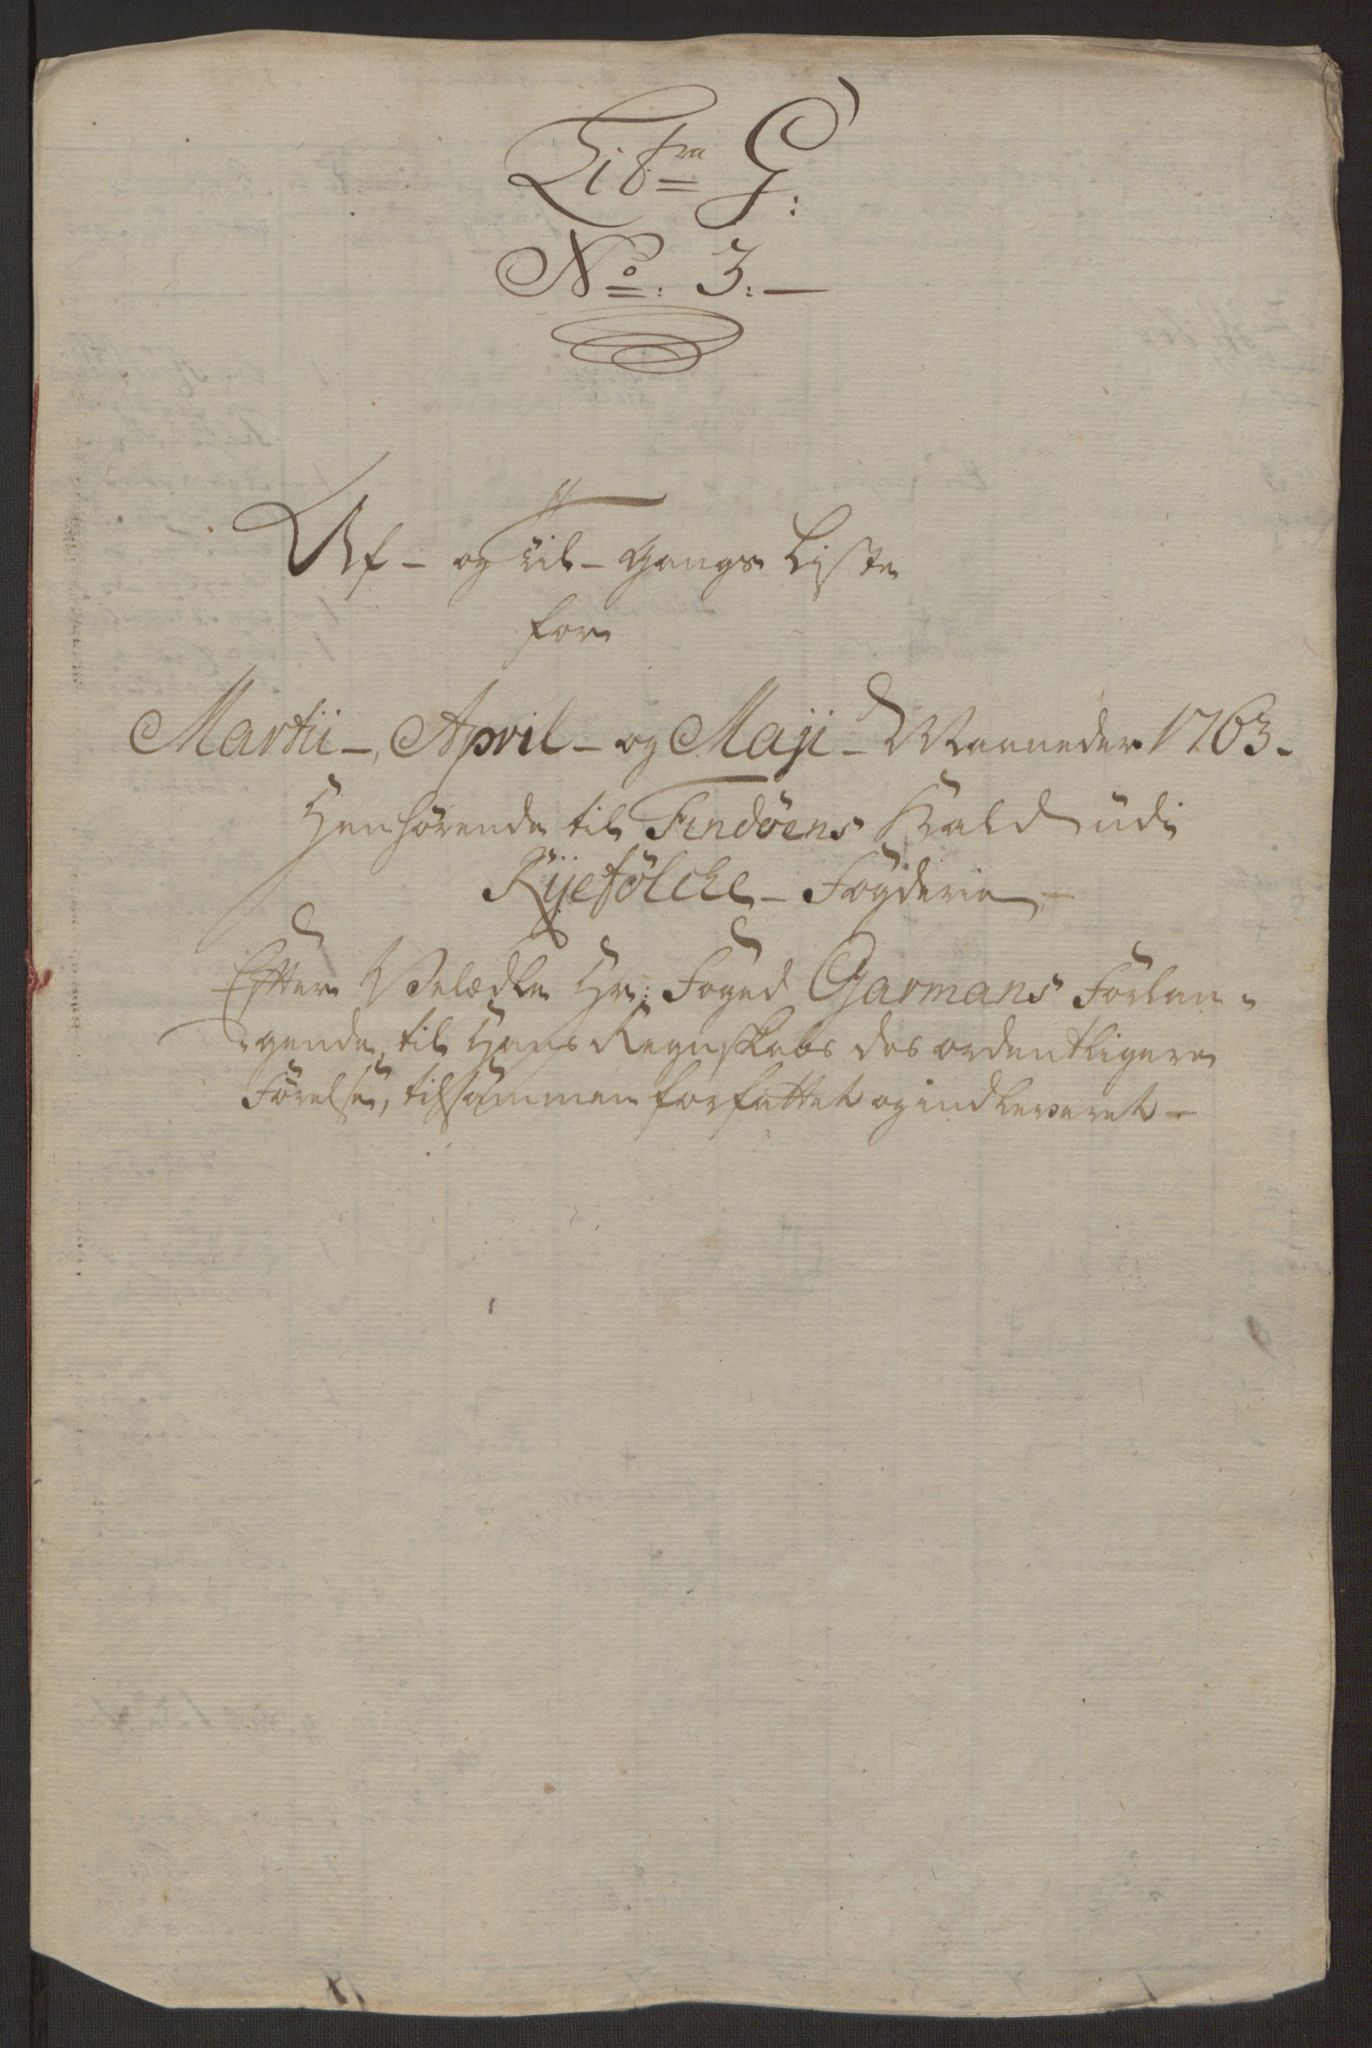 Lit^ra G:
N^o: 3. —
Af- og Til- Gangs Liste
for
Martii-, April- og Maji- Maaneder 1763.
Henhørende til Findöens Kald udi
Ryefölcke- Fögderie,
Efter Velædle Hr: Foged Garmans Forlan-
gende, til Hans Regnskabs des ordentligere
Förelse, tilsammen forfattet og indleveret-